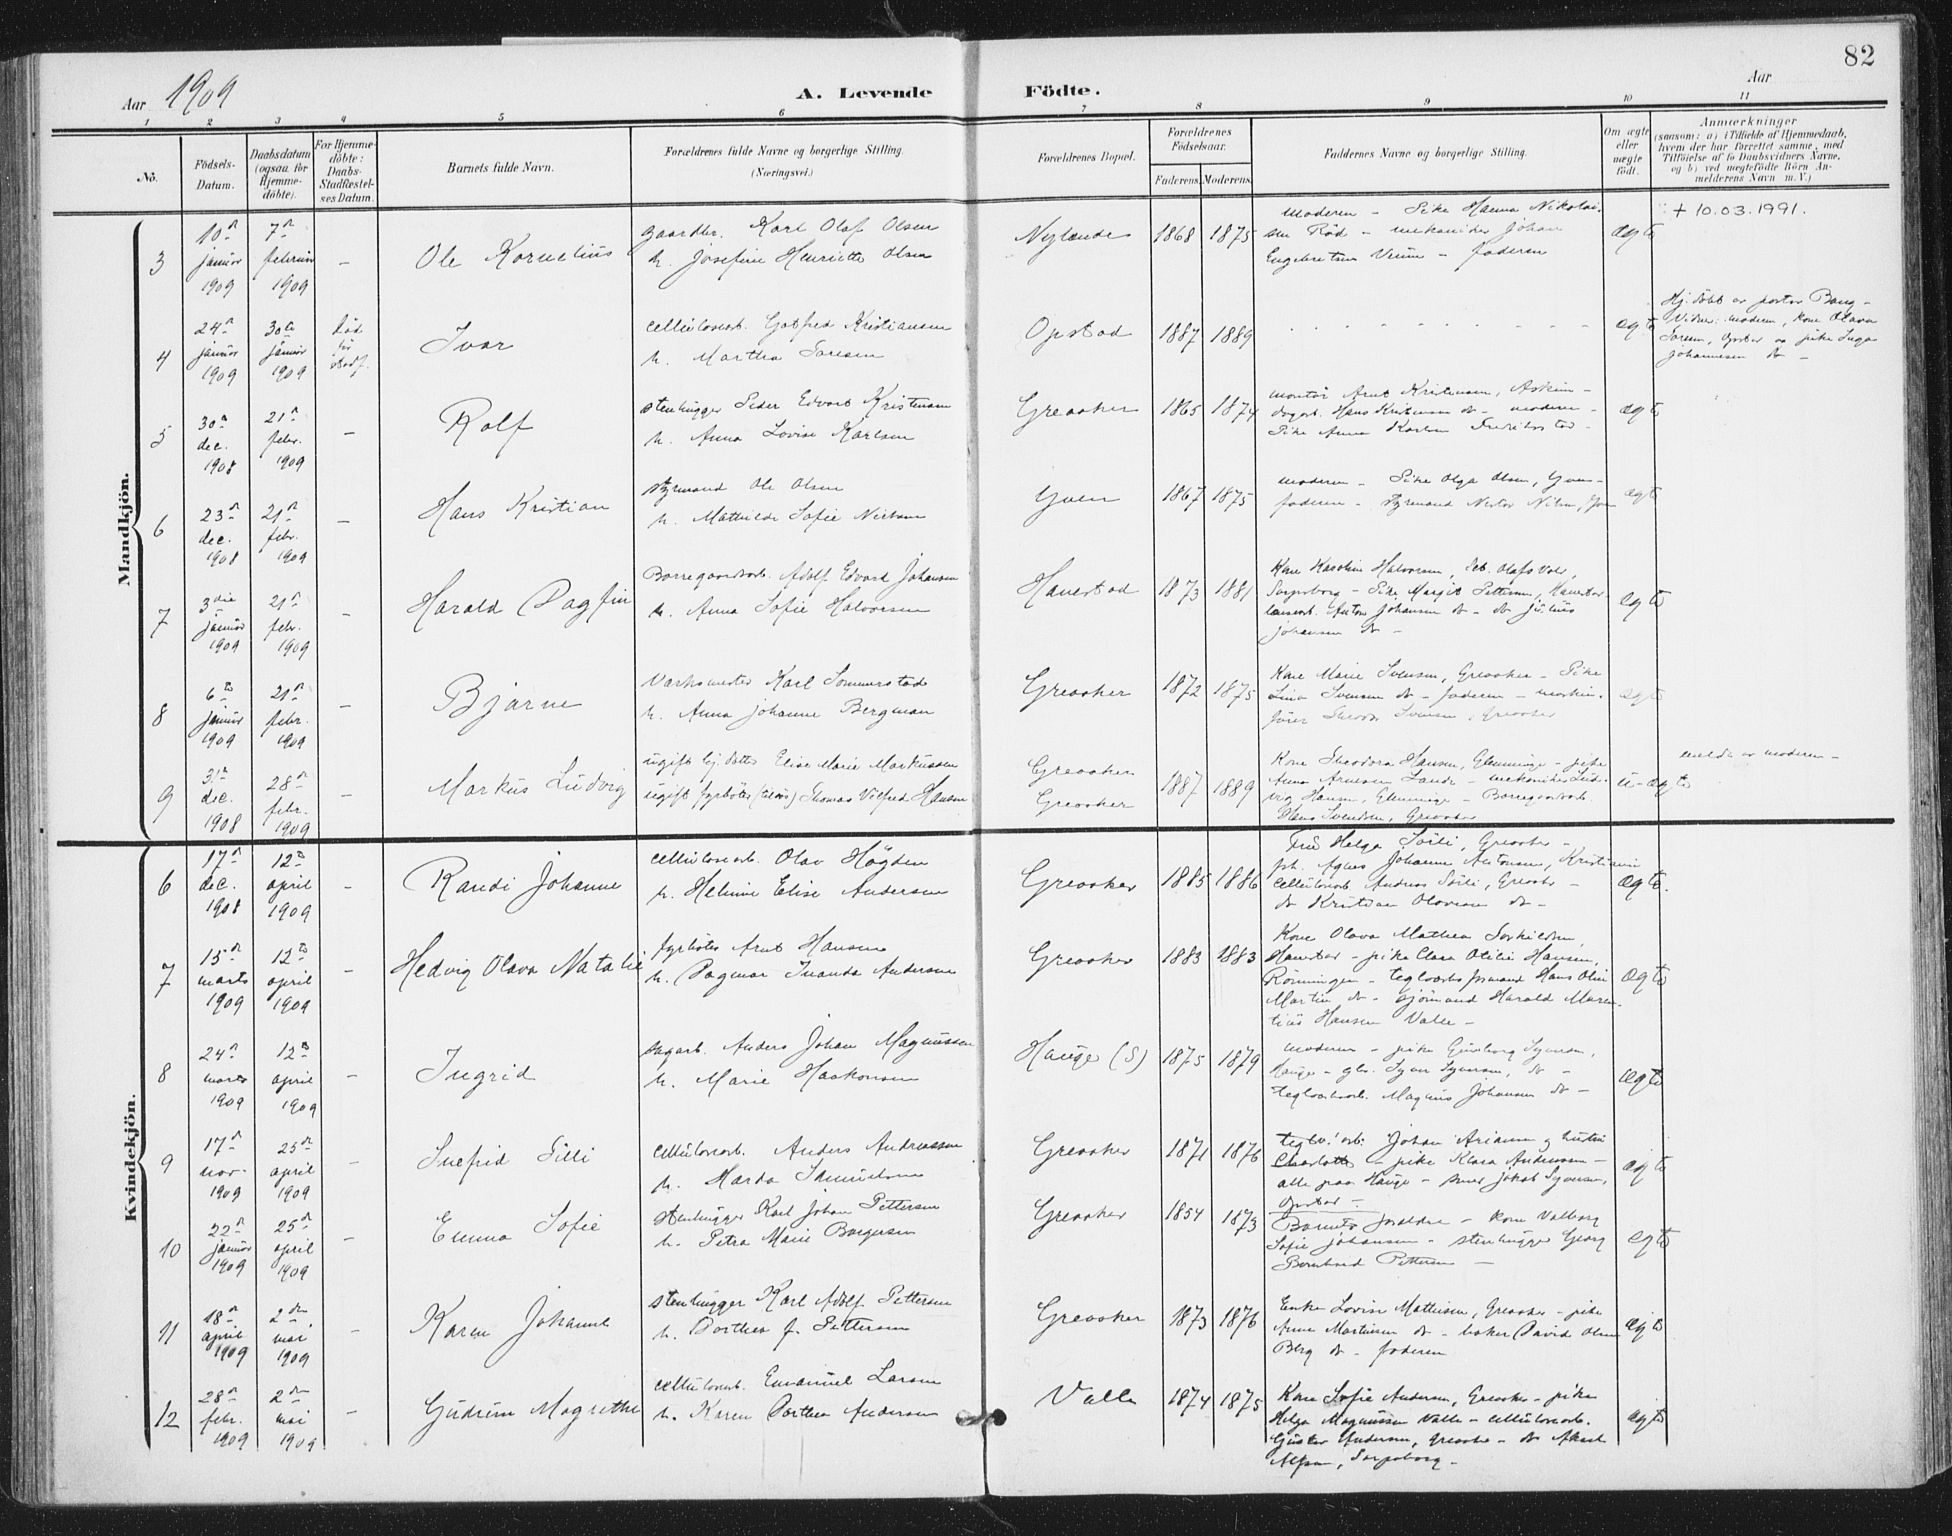 82
Aar 1909
A. Levende Födte.
Aar
1 2 3 4 5 6 7 8 9 10 11
No.
Födsels-Datum.
Daabsdatum (ogsaa for Hjemme-döbte).
For Hjemme-döbte: Daabs-Stadfæstel-ses Datum.
Barnets fulde Navn.
Forældrenes fulde Navne og borgerlige Stilling.
(Næringsvei.)
Forældrenes Bopæl.
Forældrenes Födselsaar.
Faderens. Moderens.
Faddernes Navne og borgerlige Stilling.
Om ægte eller uægte födt.
Anmærkninger
(saasom: a) i Tilfælde af Hjemmedaab,
hvem der har forrettet samme, med
Tilföielse af to Daabsvidners Navne,
og b) ved uægtefödte Börn An-
melderens Navn m. V.)
Mandkjön.
3 10de januar 1909 7de februar 1909 – Ole Kornelius
gaardbr. Karl Olaf Olsen
h. Josefine Henriette Olsen
Nylande 1868 1875
moderen – Pike Hanna Nikolai-
sen Röd – mekaniker Johan
Engebretsen – faderen
ægte
+ 10.03.1991.
4 24de januar 1909 30te januar 1909 Död før Stadf. Ivar
cellulosearb. Gotfred Kristiansen
h. Martha
Opstad 1887 1889
ægte
Hj. döbt av pastor Bang –
Vidner: moderen, kone Olava
Opstad og pike Inga
Johannesen do –
5 30te dec. 1908 21de febr. 1909 – Rolf
stenhugger Peder Edvart Kristensen
h. Anna Lovise Karlsen
Greaaker 1865 1874
montör Arnt Kristensen,
Hans Kristensen do – moderen –
Pike Anna Karlsen Fredriksstad –
ægte
6 23de dec. 1908 21de febr. 1909 – Hans Kristian
styrmand Ole Olsen
h. Mathilde Sofie Nielsen
1867 1875
moderen – Pike Olga Olsen,
faderen – styrmand
ægte
7 3die januar 1909 21de febr. 1909 – Harald Dagfin
Borregaardsarb. Adolf Edvard Johansen
h. Anna Sofie Halvorsen
Hanestad 1873 1881
Kone Karoline Halvorsen, Olafs Vold,
Sarpsborg – Pike Margit Pettersen, Hanestad
Anton Johansen do – do Julius
Johansen do –
ægte
8 6te januar 1909 21de febr. 1909 – Bjarne
Værksmester Karl Sommerstad
h. Anna Johanne Bergman
Greaaker 1872 1875
Kone Marie Svensen, Greaaker – Pike
Lina Svensen do – faderen – maskin-
förer Svensen, Greaaker
ægte
9 31te dec. 1908 28de febr. 1909 – Markus Ludvig
ugift Elise Marie Markussen
ugift fyrböter Thomas Vilfred Hansen
Greaaker
Greaaker 1887 1889
Kone Theodora Hansen, Glemminge – pike
Anna Arnesen Lande – mekaniker Lud-
vig Hansen, Glemminge – Borregaardsarb.
Hans Svendsen, Greaaker
u-ægte
meldt av moderen –
Kvindekjön.
6 17de dec. 1908 12te april 1909 – Randi Johanne
cellulosearb. Olav Högden
h. Helmine Elise Andersen
Greaaker 1885 1886
Fru Helga Sörli, Greaaker –
frk. Agnes Johanne Antonsen, Kristiania
cellulosearb. Andreas Sörli, Greaaker –
do Kristian Olavesen do –
ægte.
7 15de marts 1909 12te april 1909 – Hedvig Olava Natalie
fyrböter Arnt Hansen
h. Dagmar Andersen
Greaaker 1883 1883
Kone Olava Mathea
Hanestad – pike Clara Otilie Hansen,
Rönningen – teglværksformand Hans Olin
Martin do – sjömand Harald Maren-
tius Hansen Valle –
ægte
8 24de marts 1909 12te april 1909 – Ingrid
sagarb. Anders Johan Magnussen
h. Marie Haakonsen
Hauge (S) 1875 1879
moderen – pike Gunborg Syversen,
Hauge – gbr. Syver Syversen, do –
teglværksarb. Magnus Johansen do –
ægte
9 17de nov. 1909 25de april 1909 – Inefrid Silli
cellulosearb. Anders Andreassen
h. Marda Samuelsen
Greaaker 1871 1876
teglv. arb. Johan Ariansen og hustru
Charlotte – pike Klara Andreassen –
alle paa Hauge – Jakob Syversen,
Opstad –
ægte
10 22de januar 1909 25de april 1909 – Emma Sofie
Stenhugger Karl Johan Pettersen
h. Petra Marie Borgersen
Greaaker 1854 1873
Barnets foreldre – kone Valborg
Sofie Johansen – stenhugger Georg
Bernhard Pettersen –
ægte
11 18de april 1909 2den mai 1909 – Karen Johanne
stenhugger Karl Adolf Pettersen
h. Dorthea f. Pettersen
Greaaker 1873 1876
Enke Lovise Mathisen, Greaaker – pike
Anna Martinsen do – baker David Olsen
Berg do – faderen
ægte
12 28de febr. 1909 2den mai 1909 – Gudrun Magrethe
cellulosearb. Emanuel Larsen
h. Karen Dorthea Andersen
Valle 1874 1875
Kone Sofie Andersen, Greaaker – pike
Helga Magnussen Valle – cellulosearb.
Gustav Andersen, Greaaker – do Aksel
Sarpsborg –
ægte